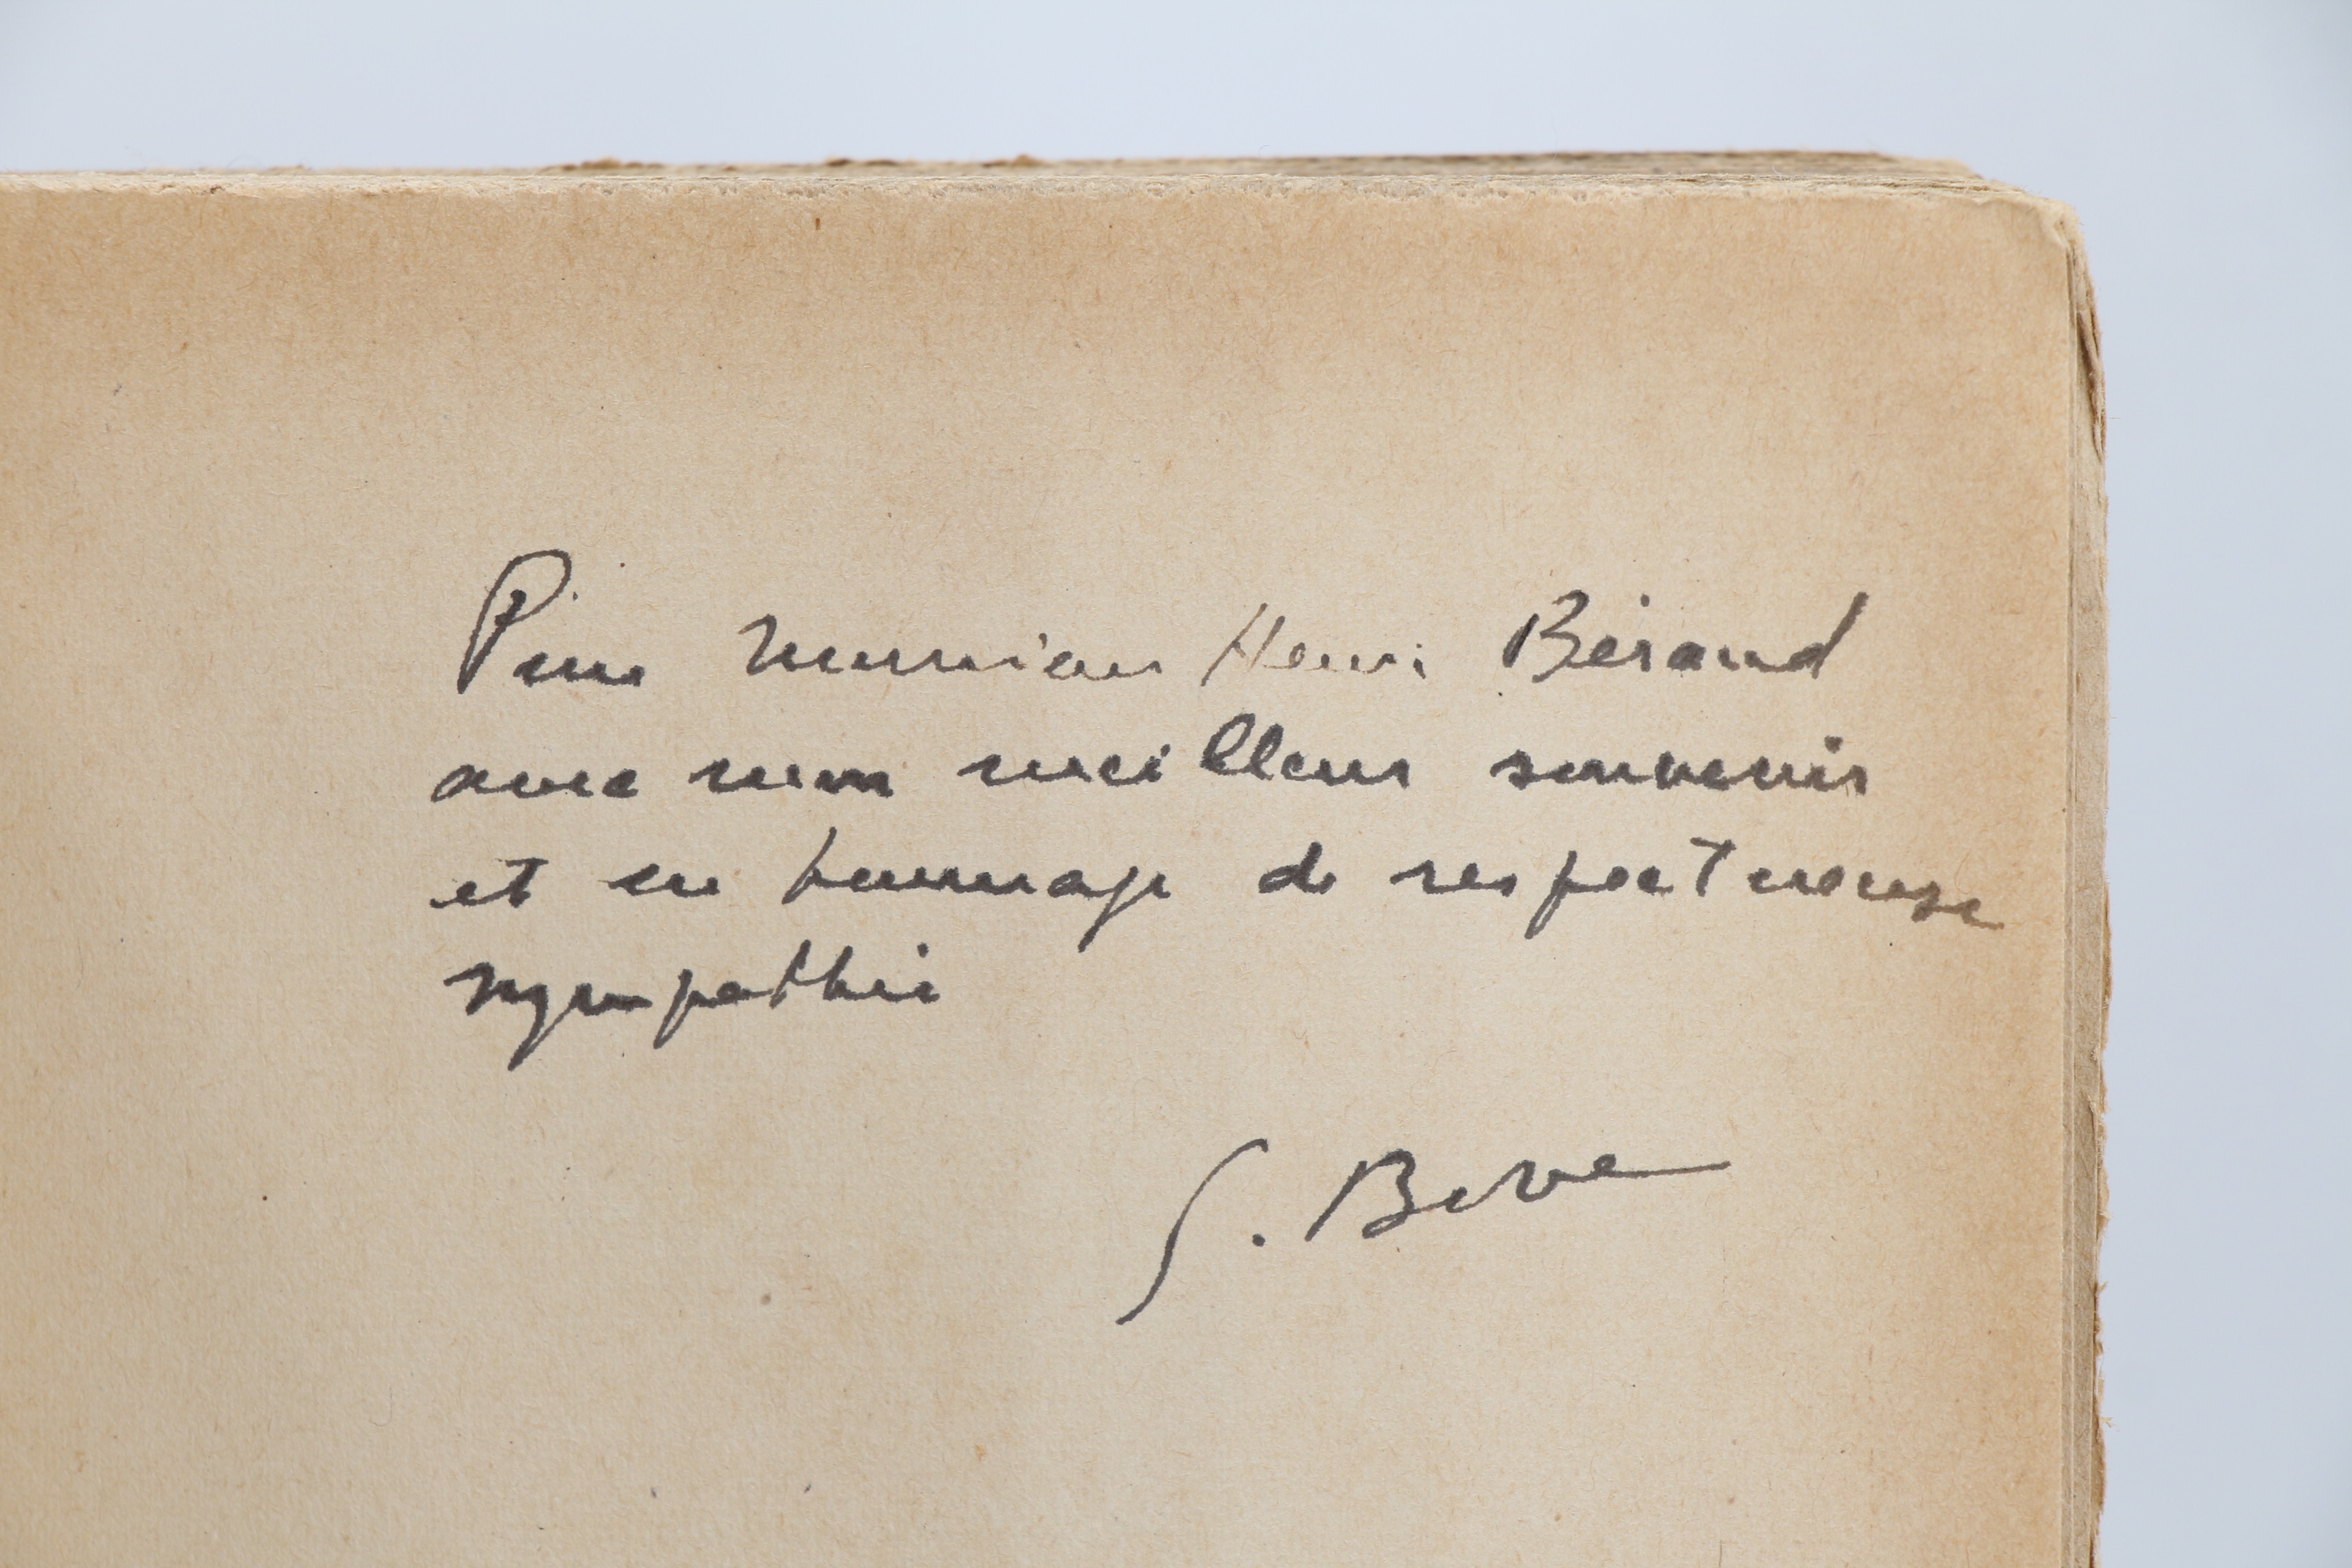 Pour Monsieur Henri Béraud
avec mon meilleur souvenir
et en hommage de respectueuse
sympathie
E. Bove